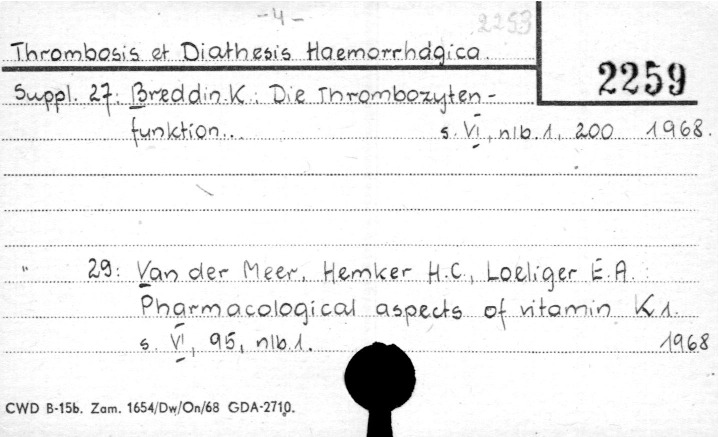 -4-
2253
Thrombosis et Diathesis Haemorrhagica.
2259
Suppl. 27: Breddin K.: Die Thrombozyten-
funktion... s. VI, nlb. 1, 200 1968.
" 29: Van der Meer, Hemker H.C., Loeliger E.A.:
Pharmacological aspects of vitamin K1.
s. VI, 95, nlb. 1. 1968
CWD B-15b. Zam. 1654/Dw/On/68 GDA-2710.